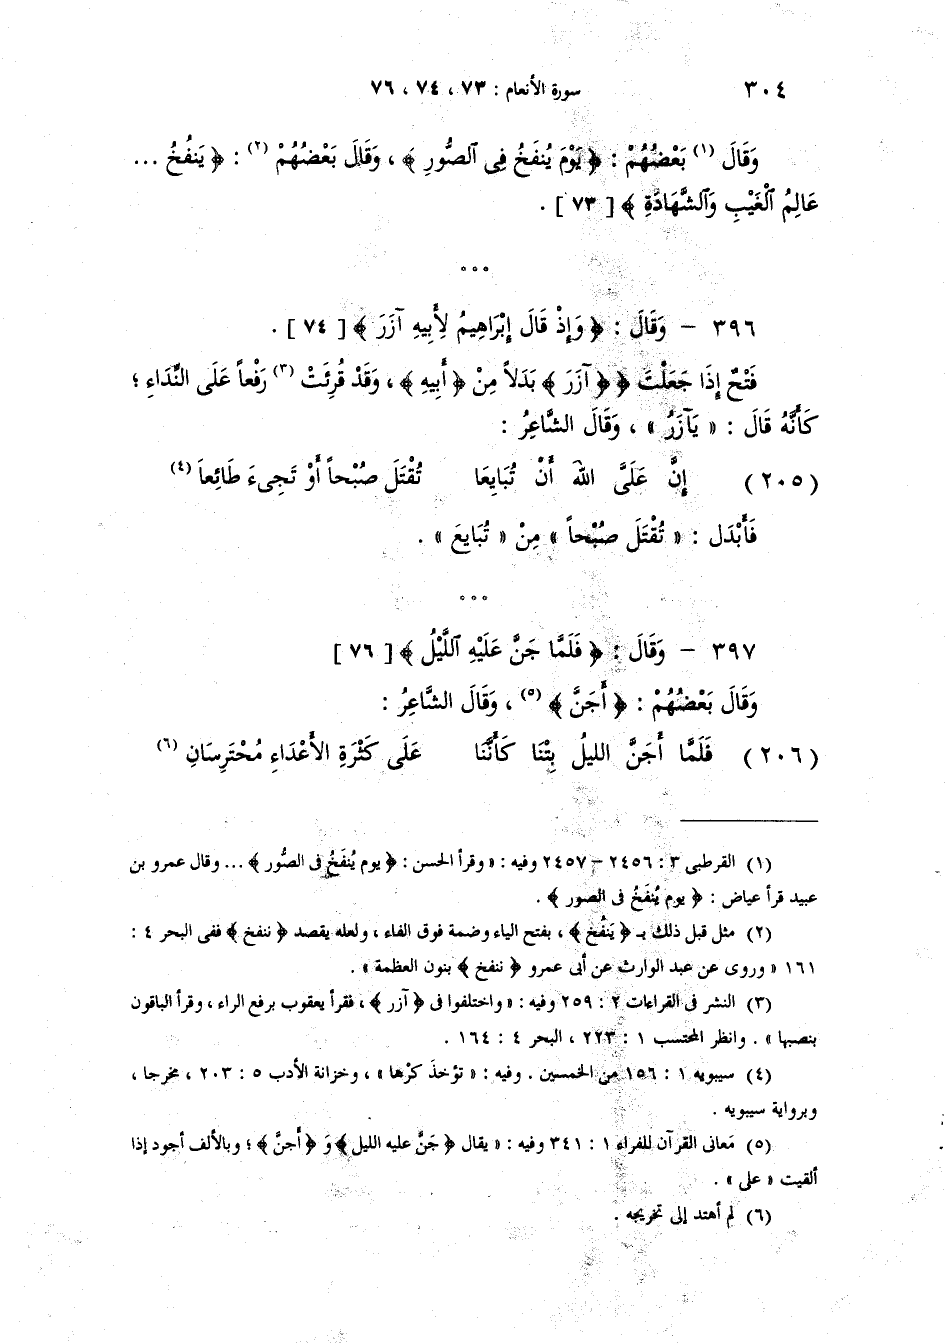 ٣٠٤ سورة الأنعام : ٧٣ ، ٧٤ ، ٧٦
وَقَالَ (١) بَعْضُهُمْ : ﴿ يَوْمَ يُنفَخُ فِى ٱلصُّورِ ﴾ ، وَقَالَ بَعْضُهُمْ (٢) : ﴿ يَنفُخُ ...
عَالِمُ ٱلْغَيْبِ وَٱلشَّهَادَةِ ﴾ [ ٧٣ ] .
° ° °
٣٩٦ – وَقَالَ : ﴿ وَإِذْ قَالَ إِبْرَاهِيمُ لِأَبِيهِ آزَرَ ﴾ [ ٧٤ ] .
فَتْحٌ إِذَا جَعَلْتَ ﴿ ﴿ آزَرَ ﴾ بَدَلاً مِنْ ﴿ أَبِيهِ ﴾ ، وَقَدْ قُرِئَتْ (٣) رَفْعاً عَلَى النِّدَاءِ ؛
كَأَنَّهُ قَالَ : « يَآزَرُ » ، وَقَالَ الشَّاعِرُ :
(٢٠٥) إِنَّ عَلَىَّ اللهَ أَنْ تُبَايِعَا تُقْتَلَ صُبْحاً أَوْ تَجِىءَ طَائِعاً (٤)
فَأَبْدَل : « تُقْتَلَ صُبْحاً » مِنْ « تُبَايِعَ » .
° ° °
٣٩٧ – وَقَالَ : ﴿ فَلَمَّا جَنَّ عَلَيْهِ ٱللَّيْلُ ﴾ [ ٧٦ ]
وَقَالَ بَعْضُهُمْ : ﴿ أَجَنَّ ﴾ (٥) ، وَقَالَ الشَّاعِرُ :
(٢٠٦) فَلَمَّا أَجَنَّ الليلُ بِتْنَا كَأَنَّنَا عَلَى كَثْرَةِ الأَعْدَاءِ مُحْتَرِسَانِ (٦)
(١) القرطبى ٣ : ٢٤٥٦ – ٢٤٥٧ وفيه : « وقرأ الحسن : ﴿ يوم يُنفَخُ فى الصُّور ﴾ ... وقال عمرو بن
عبيد قرأ عياض : ﴿ يوم يُنفَخُ فى الصور ﴾ .
(٢) مثل قبل ذلك بـ ﴿ يَنفُخ ﴾ ، بفتح الياء وضمة فوق الفاء ، ولعله يقصد ﴿ ننفخ ﴾ ففى البحر ٤ :
١٦١ « وروى عن عبد الوارث عن أبى عمرو ﴿ ننفخ ﴾ بنون العظمة » .
(٣) النشر فى القراءات ٢ : ٢٥٩ وفيه : « واختلفوا فى ﴿ آزر ﴾ ، فقرأ يعقوب برفع الراء ، وقرأ الباقون
بنصبها » . وانظر المحتسب ١ : ٢٢٣ ، البحر ٤ : ١٦٤ .
(٤) سيبويه ١ : ١٥٦ من الخمسين . وفيه : « تؤخذَ كرْها » ، وخزانة الأدب ٥ : ٢٠٣ ، مخرجا ،
وبرواية سيبويه .
(٥) مَعانى القرآن للفراء ١ : ٣٤١ وفيه : « يقال ﴿ جَنَّ عليه الليل ﴾ وَ ﴿ أجنَّ ﴾ ؛ وبالألف أجود إذا
ألقيت « على » .
(٦) لم أهتد إلى تخريجه .